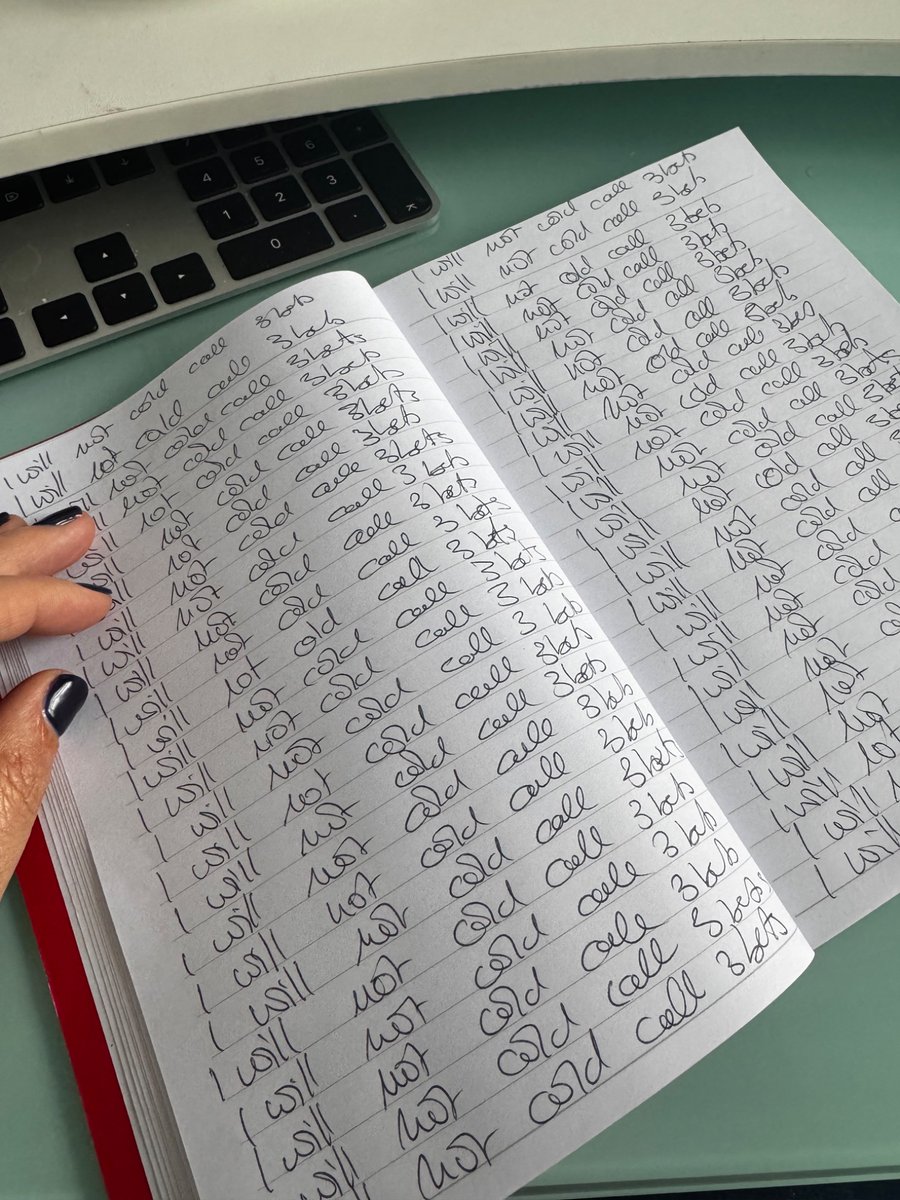 4 5 6
1 2 3
0 .
I will not cold call 3 bets
I will not cold call 3 bets
I will not cold call 3 bets
will not cold call 3 bets
will not cold call 3 bets
will not cold call 3 bets
I will not cold call 3 bets
I will not cold call 3 bets
I will not cold call 3 bets
I will not cold call 3 bets
I will not cold call 3 bets
I will not cold call 3 bets
I will not cold call 3 bets
I will not cold call 3 bets
I will not cold call 3 bets
I will not cold call 3 bets
I will not cold call 3 bets
I will not cold call 3 bets
I will not cold call 3 bets
I will not cold call 3 bets
I will not cold call 3 bets
will not cold call 3 bets
not cold call 3 bets
I will not cold call 3 bets
I will not cold call 3 bets
I will not cold call 3 bets
I will not cold call 3 bets
I will not cold call 3 bets
I will not cold call 3 bets
I will not cold call 3 bets
I will not cold call 3 bets
I will not cold call 3 bets
I will not cold call 3 bets
I will not cold call 3 bets
I will not cold call
I will not cold call
I will not cold
I will not cold
I will not
I will not
I will not
I will not
I will
I will